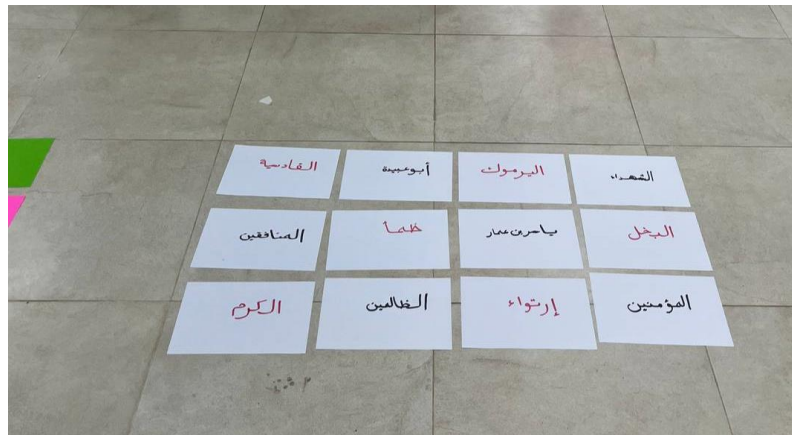 الشهداء
اليرموك
أبو عبيدة
القادسية
البخل
ياسر بن عمار
ظمأ
المنافقين
المؤمنين
إرتواء
الظالمين
الكرم